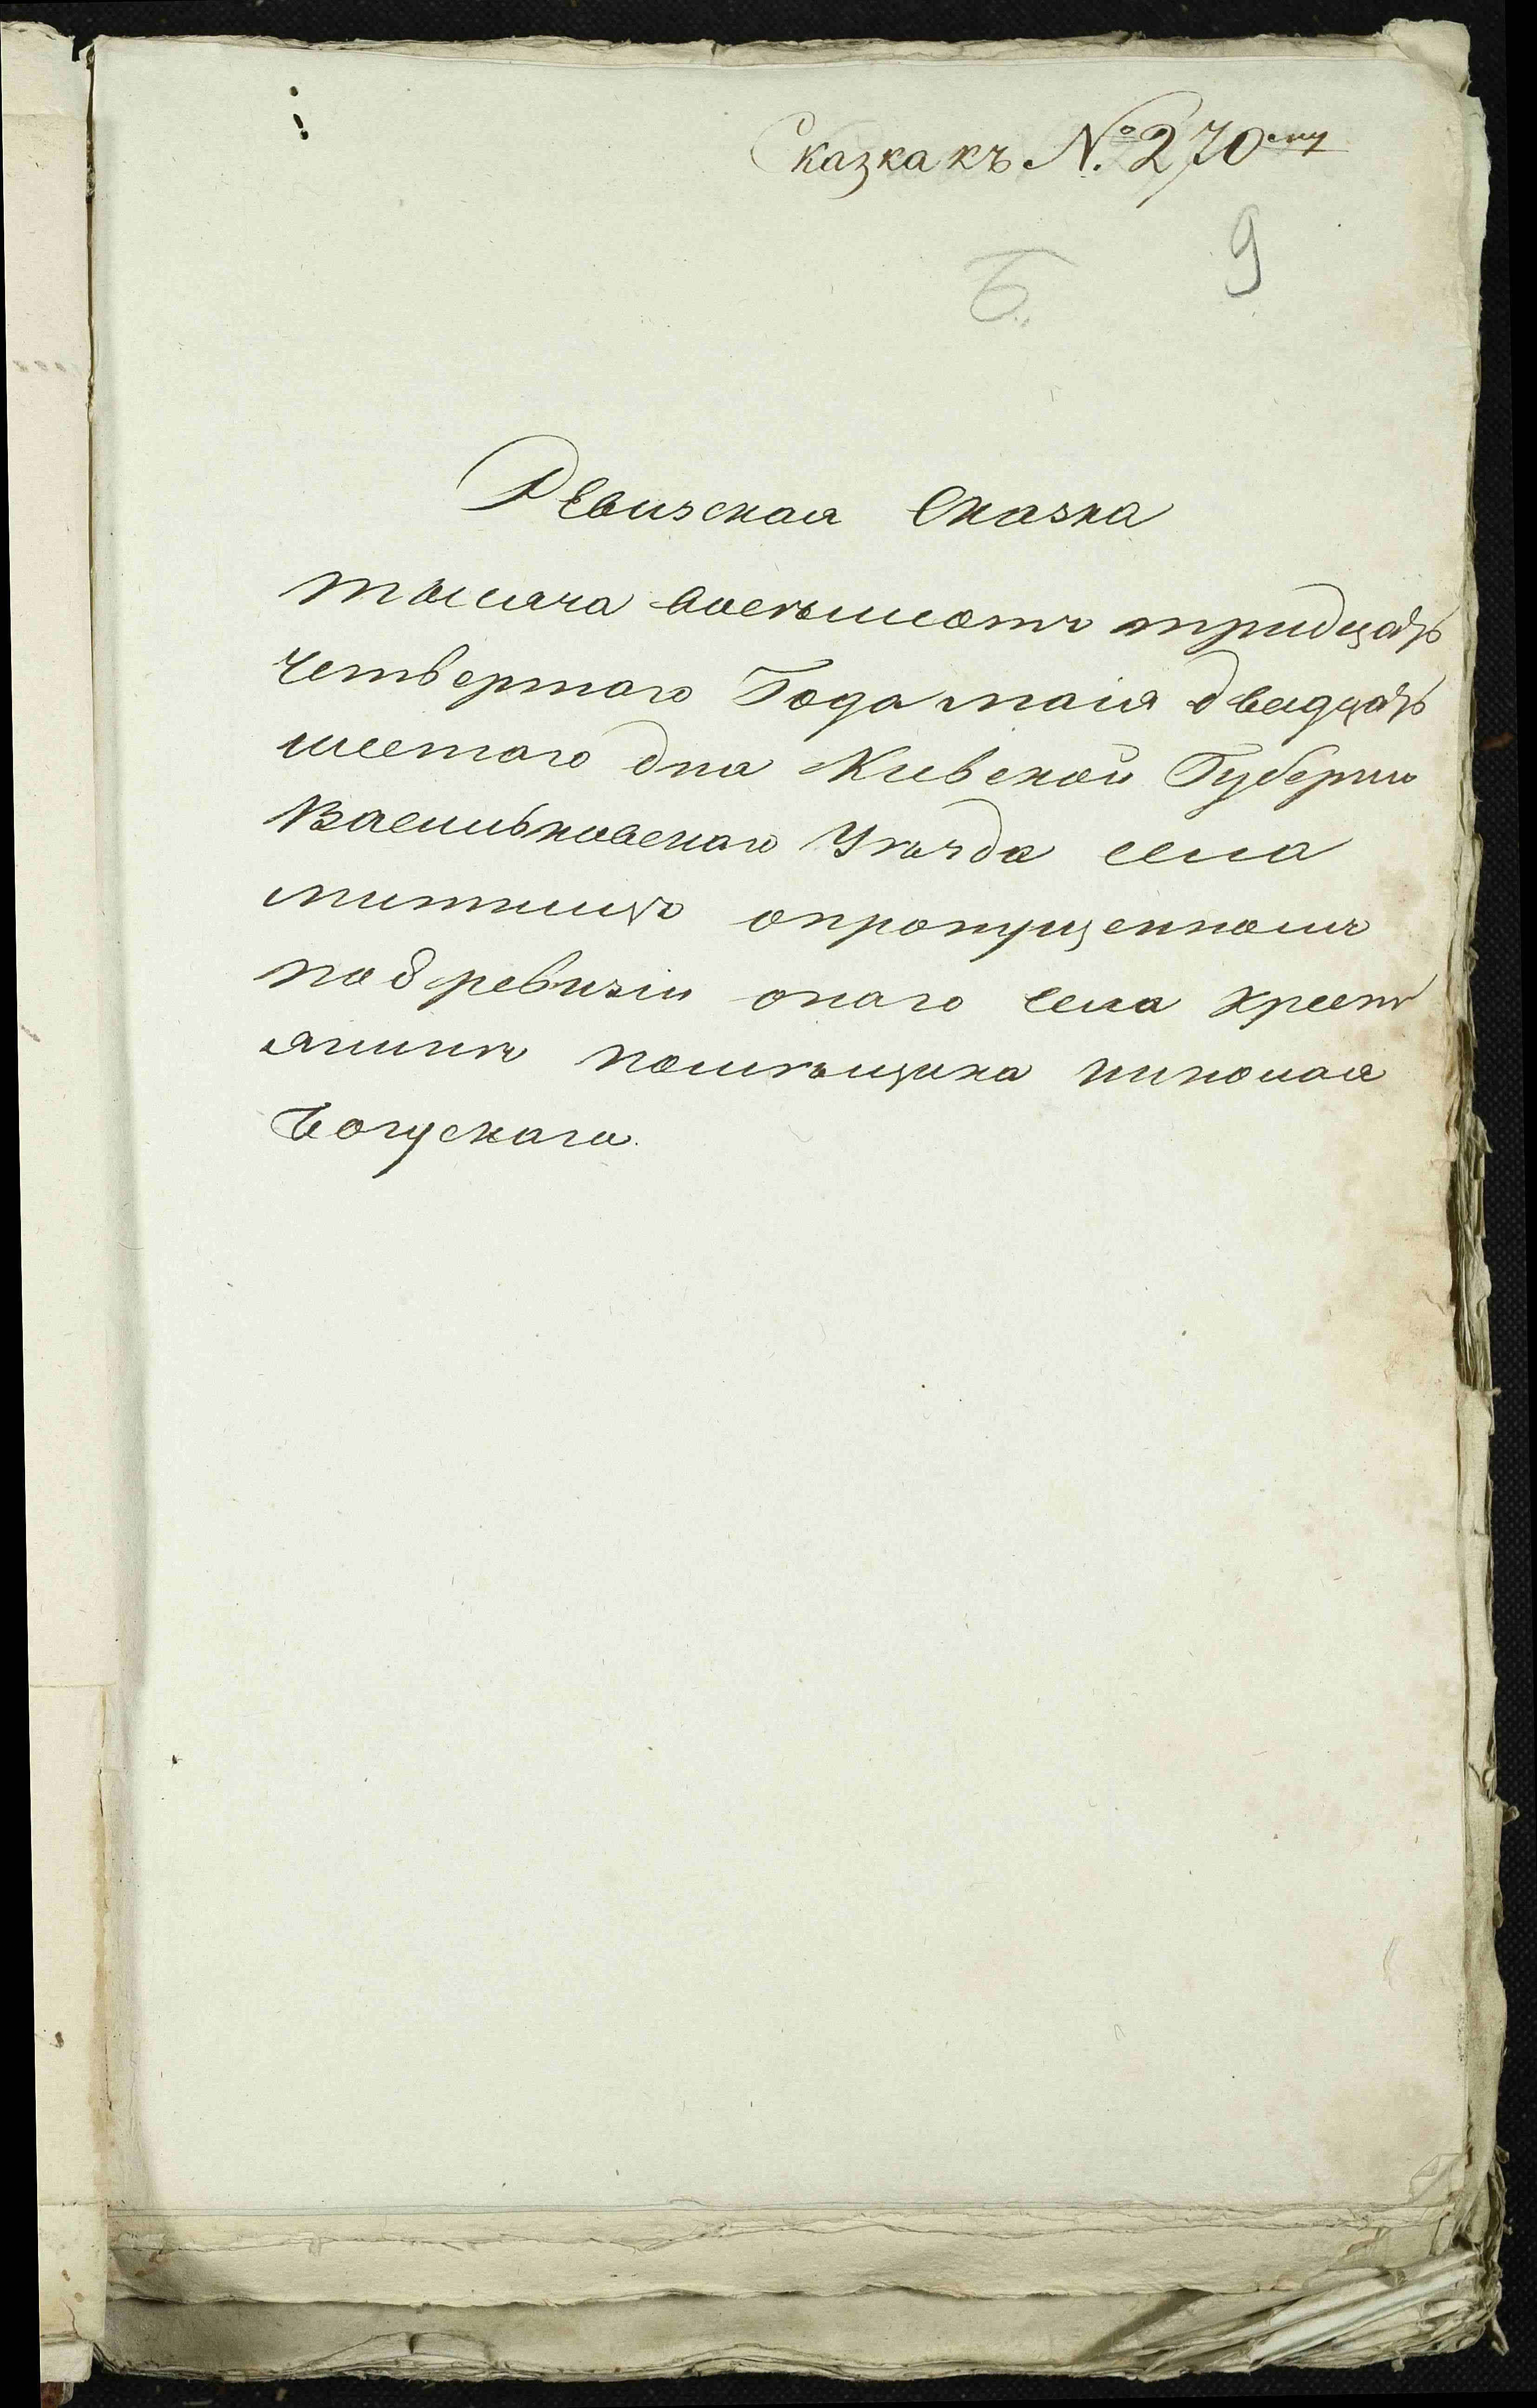 Сказка къ №. 270му
9
Б.
Ревизская Сказка
тысяча восемьсотъ тридцать
четвертого Года маія двадцать
шестаго дна Киевской Губернии
Васильковскаго Уѣзда села
митницъ опропущенномъ
по 8 ревизіи онаго села крестъ
янинѣ помѣщика николая
Богускаго.